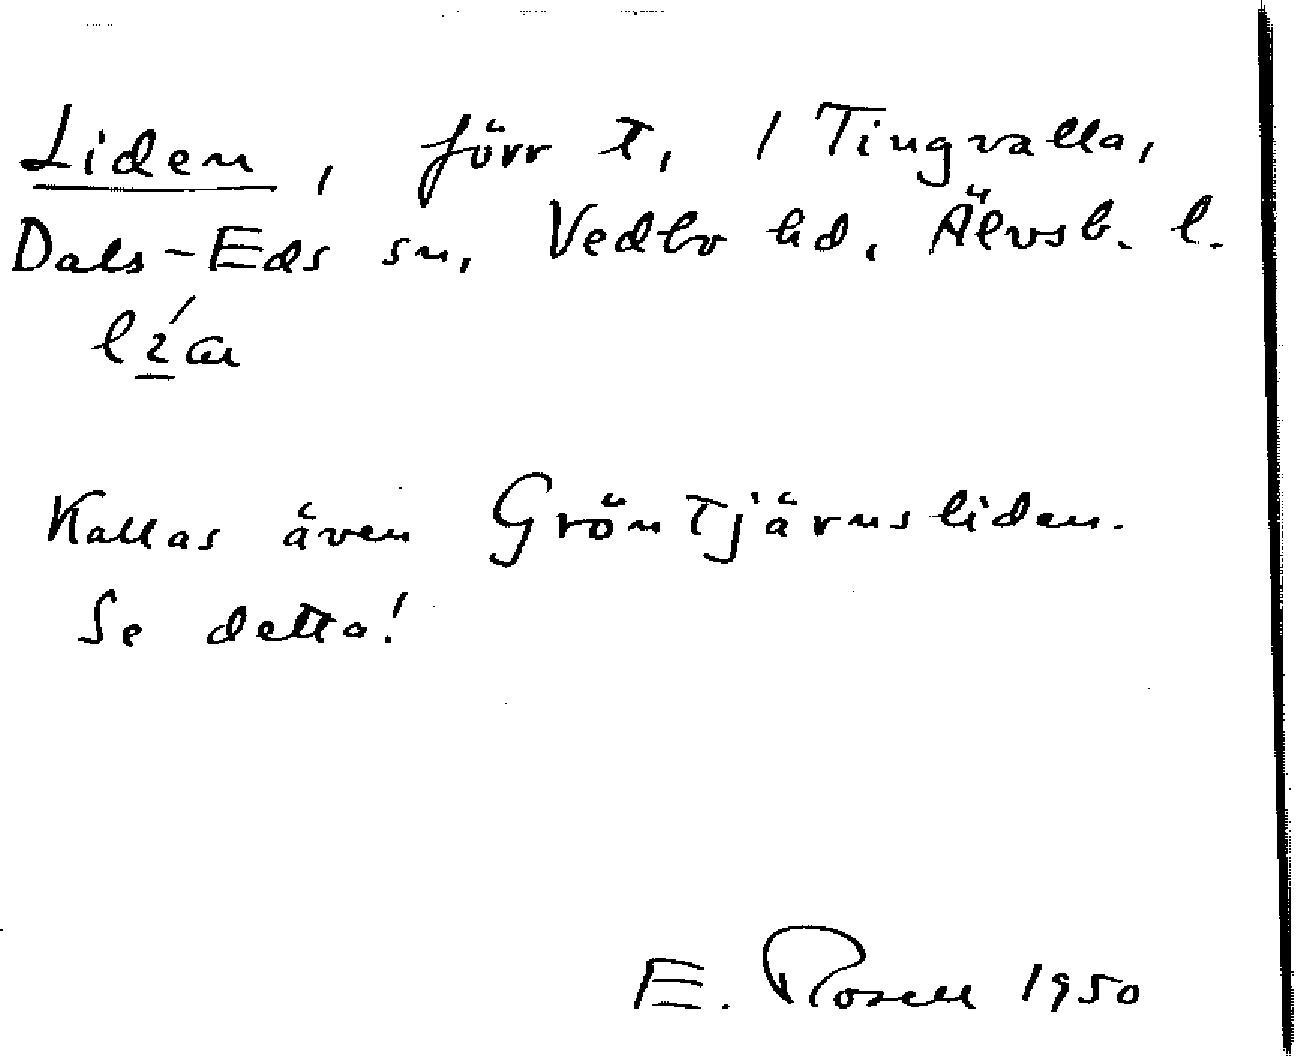 Liden, förr t, / Tingvalla,
Dals-Eds sn, Vedbo hd, Älvsb. l.
Kallas även Gröntjärnsliden.
Se detta!
E. Rosell 1950